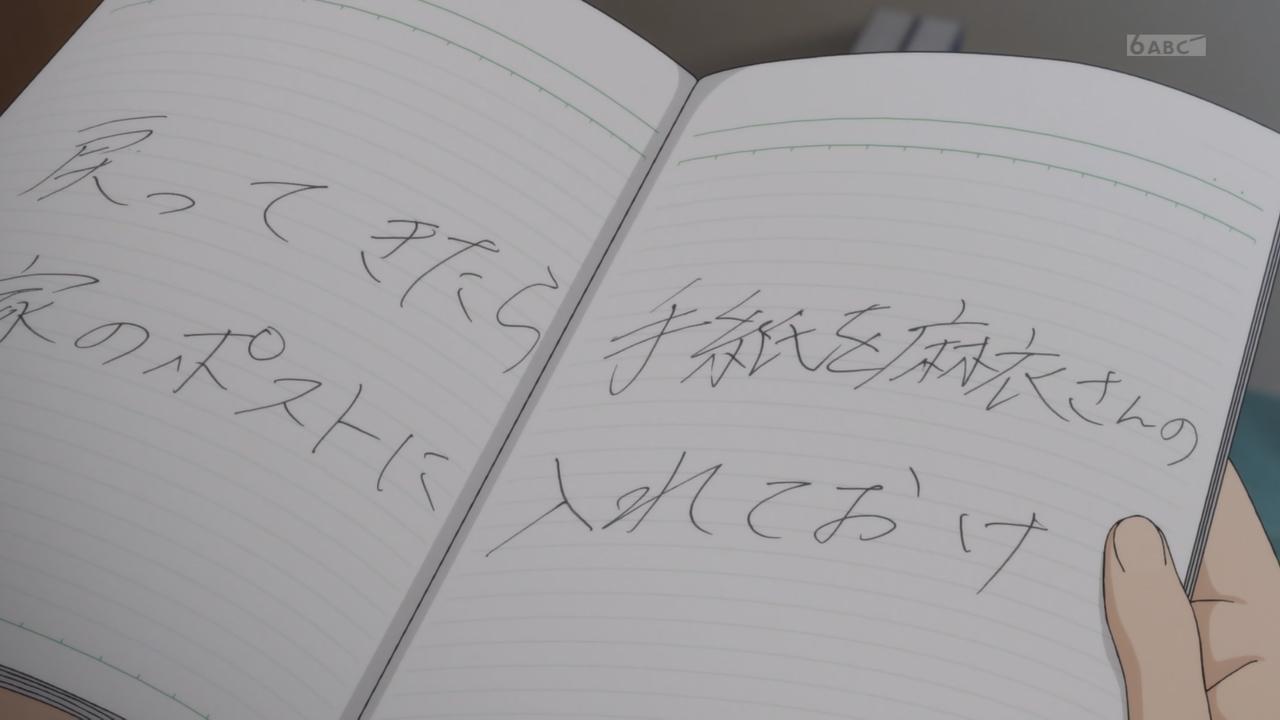 戻ってきたら 手紙を麻衣さんの
家のポストに 入れておけ
6ABC